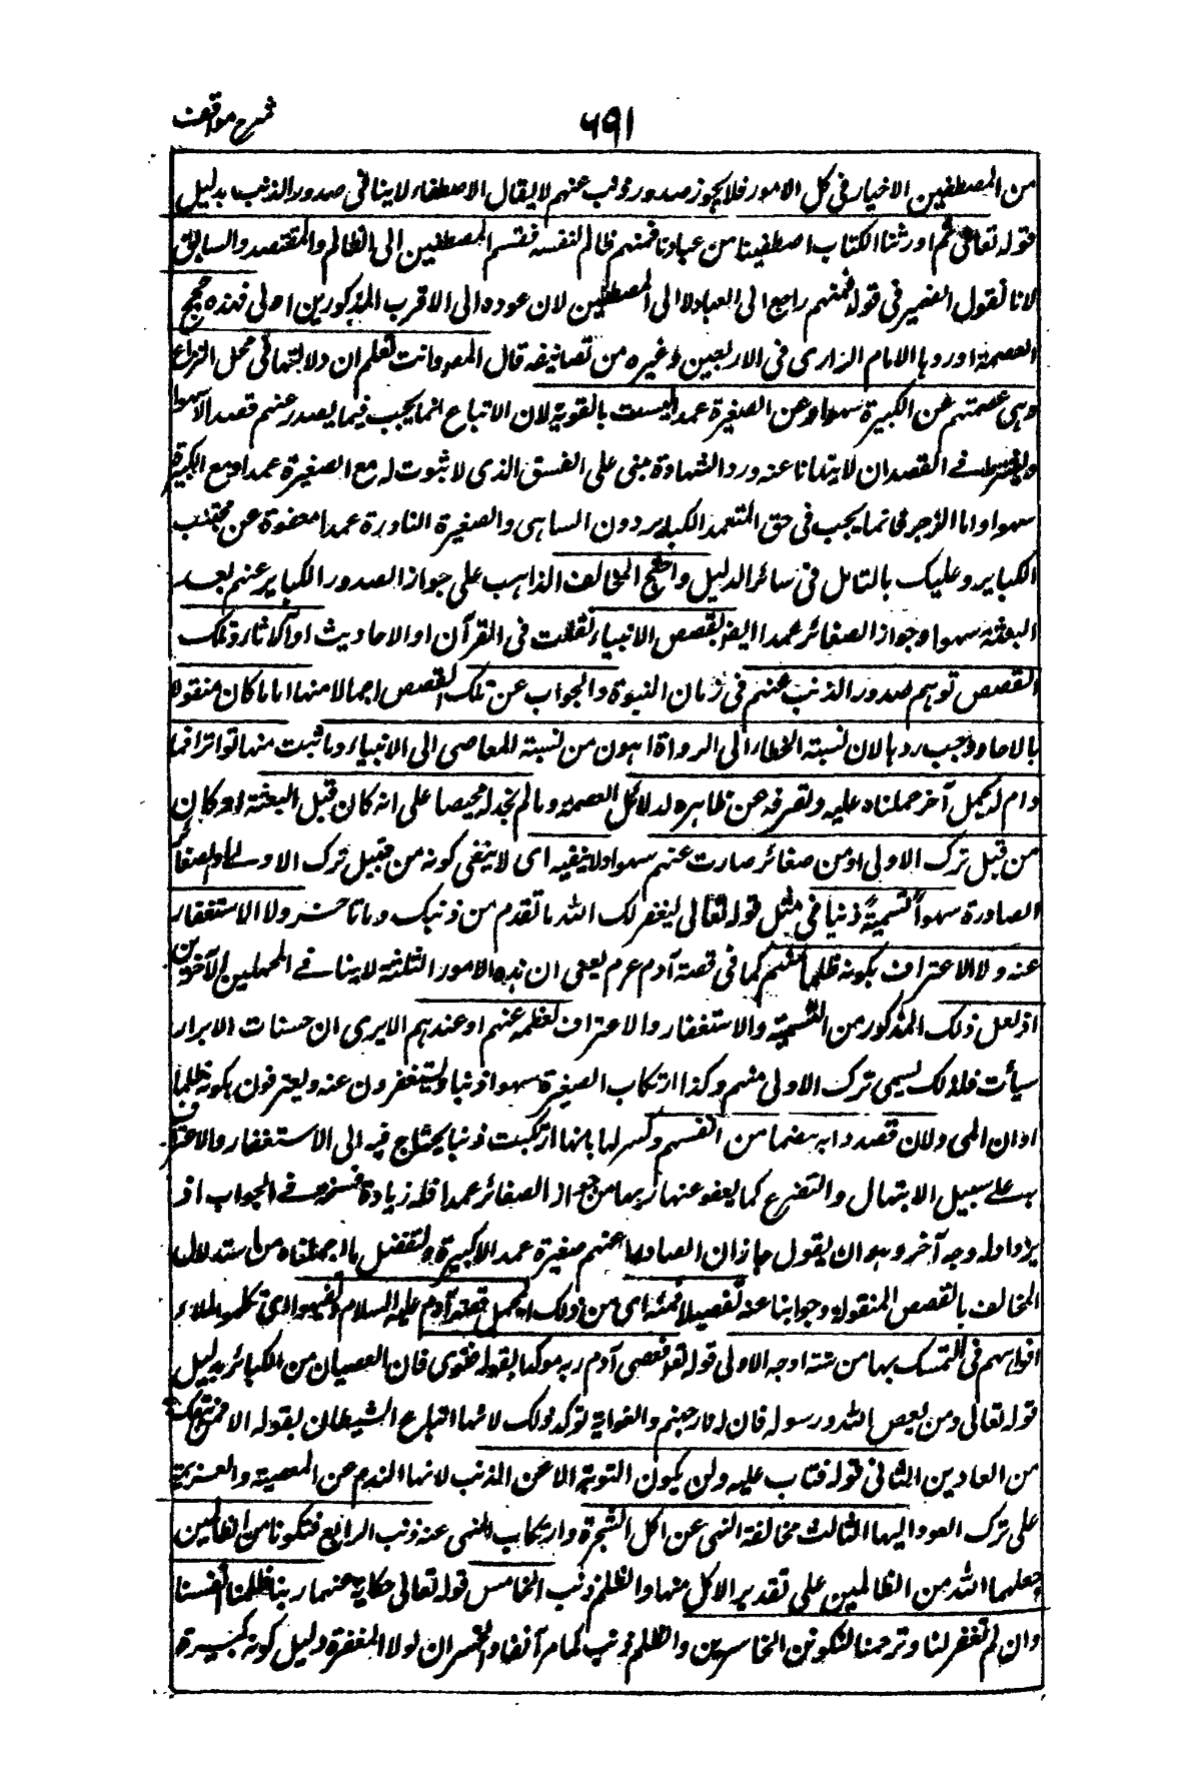 شرح مواقف
٦٩١
من المصطفين الاخيار فى كل الامور فلا يجوز صدور ذنب عنهم لا يقال الاصطفاء لا ينافى صدور الذنب بدليل
قوله تعالى ثم اورثنا الكتاب اصطفينا من عبادنا فمنهم ظالم لنفسه فقسم المصطفين الى الظالم والمقتصد والسابق
لانا نقول الضمير فى قوله فمنهم راجع الى العباد لا الى المصطفين لان عوده الى الاقرب المذكورين اولى فهذه حجج
العصمة اوردها الامام الرازى فى الاربعين وغيره من تصانيفه قال المص وانت تعلم ان دلالتها فى محل النزاع
وهى عصمتهم عن الكبيرة سهوا وعن الصغيرة عمدا ليست بالقوية لان الاتباع انما يجب فيما يصدر عنهم قصدا لا سهوا
ويشترط فى القصد ان لا ينهانا عنه ورد الشهادة مبنى على الفسق الذى لا ثبوت له مع الصغيرة عمدا ومع الكبيرة
سهوا واما الزجر فانما يجب فى حق المتعمد الكباير دون الساهى والصغيرة النادرة عمدا معفوة عن مجتنب
الكباير وعليك بالتامل فى سائر الدليل واحتج المخالف الذاهب على جواز الصدور الكباير عنهم بعد
البعثة سهوا وجواز الصغائر عمدا ايضا بقصص الانبياء نقلت فى القرآن او الاحاديث او الآثار وتلك
القصص توهم صدور الذنب عنهم فى زمان النبوة والجواب عن تلك القصص اجمالا منها اما ما كان منقولا
بالاحاد وجب ردها لان نسبة الخطاء الى الرواة اهون من نسبة المعاصى الى الانبياء وما ثبت منها تواترا فما
دام له محمل آخر حملناه عليه ونصرفه عن ظاهره لدلائل العصمة وما لم نجد له محيصا على انه كان قبل البعثة او كان
من قبيل ترك الاولى او من صغائر صارت عنهم سهوا ولا ينفيه اى لا ينفى كونه من قبيل ترك الاولى او الصغائر
الصادرة سهوا تسمية ذنبا فى مثل قوله تعالى ليغفر لك الله ما تقدم من ذنبك وما تاخر ولا الاستغفار
عنه ولا الاعتراف بكونه ظلما منهم كما فى قصة آدم عرم يعنى ان هذه الامور الثلثة لا ينافى المحملين الآخرين
اذ لعل ذلك المذكور من التسمية والاستغفار والاعتراف لعظمه عنهم او عندهم الا يرى ان حسنات الابرار
سيأت فلذلك يسمى ترك الاولى منهم وكذا ارتكاب الصغيرة سهوا ذنبا ويستغفرون عنه ويعترفون بكونه ظلما
اوان المى ولان قصدوا به هضما من انفسهم وكسرا لها بانها ارتكبت ذنبا يحتاج فيه الى الاستغفار والاعتراف
به على سبيل الابتهال والتضرع كما يعفو عنها ربها من جوز الصغائر عمدا فله زيادة فسحة فى الجواب اذ
يزداد له وجه آخر وهو ان يقول جاز ان الصادر عنهم صغيرة عمدا لا كبيرة ولنفصل ما اجملناه من استدلال
المخالف بالقصص المنقولة وجوابنا عنه تفصيلا فمنه اى من ذلك المجمل قصة آدم عليه السلام
افواههم فى التمسك بها من ستة اوجه الاولى قوله تع فعصى آدم ربه موكدا بقوله فغوى فان العصيان من الكبائر بدليل
قوله تعالى ومن يعص الله ورسوله فان له نار جهنم والغواية توكد ذلك لانها اتباع الشيطان بقوله الا من اتبعك
من الغاوين الثانى قوله فتاب عليه ولن يكون التوبة الا عن الذنب لانها الندم عن المعصية والعزيمة
على ترك العود اليها الثالث مخالفة النهى عن اكل الشجرة وارتكاب المنهى عنه ذنب الرابع فتكونا من الظالمين
جعلهما الله من الظالمين على تقدير الاكل منها والظلم ذنب الخامس قوله تعالى حكاية عنهما ربنا ظلمنا انفسنا
وان لم تغفر لنا وترحمنا لنكونن الخاسرين والظلم ذنب كما مر آنفا والخسران لولا المغفرة دليل كونه كبيرة